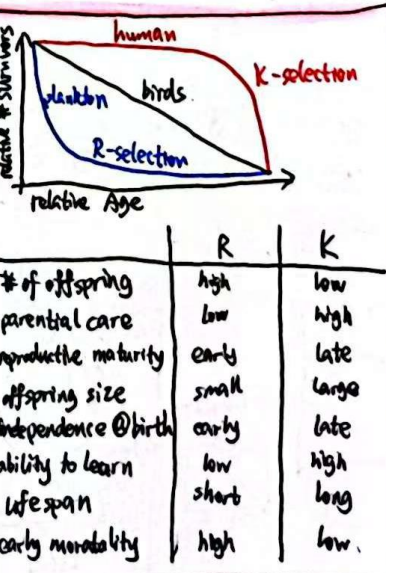 human
K-selection
relative # survivors
plankton
birds
R-selection
relative Age
R K
# of offspring high low
parential care low high
reproductive maturity early late
offspring size small large
independence @ birth early late
ability to learn low high
lifespan short long
early moratality high low.